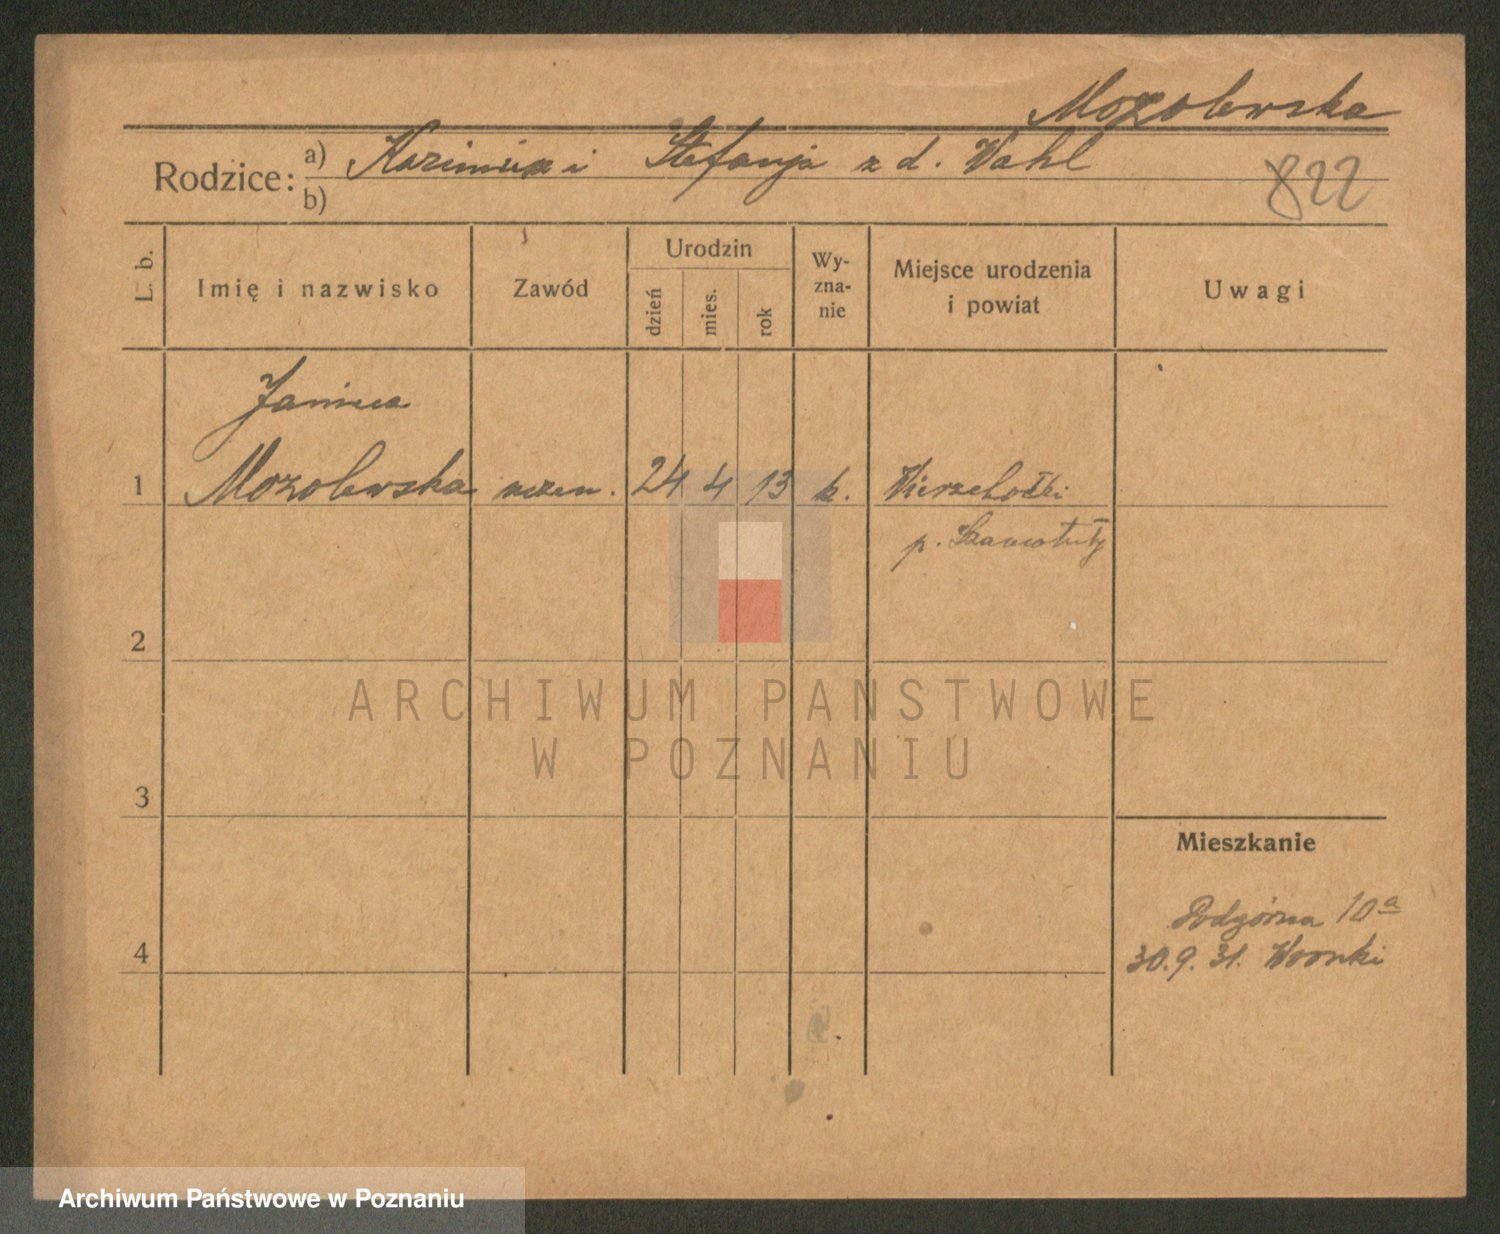 Mozolewska
Rodzice: a) Kazimierz i Stefanja z d. Wahl
b)
822
L. b.
Imię i nazwisko
Zawód
Urodzin
dzień
mies.
rok
Wy-
zna-
nie
Miejsce urodzenia
i powiat
Uwagi
Janina
1 Mozolewska uczen. 24 4 13 k. Wierzchoćki
p. Szamotuły
2
3
4
Mieszkanie
Podgórna 10a
30.9.31. Wronki
ARCHIWUM PAŃSTWOWE
W POZNANIU
Archiwum Państwowe w Poznaniu